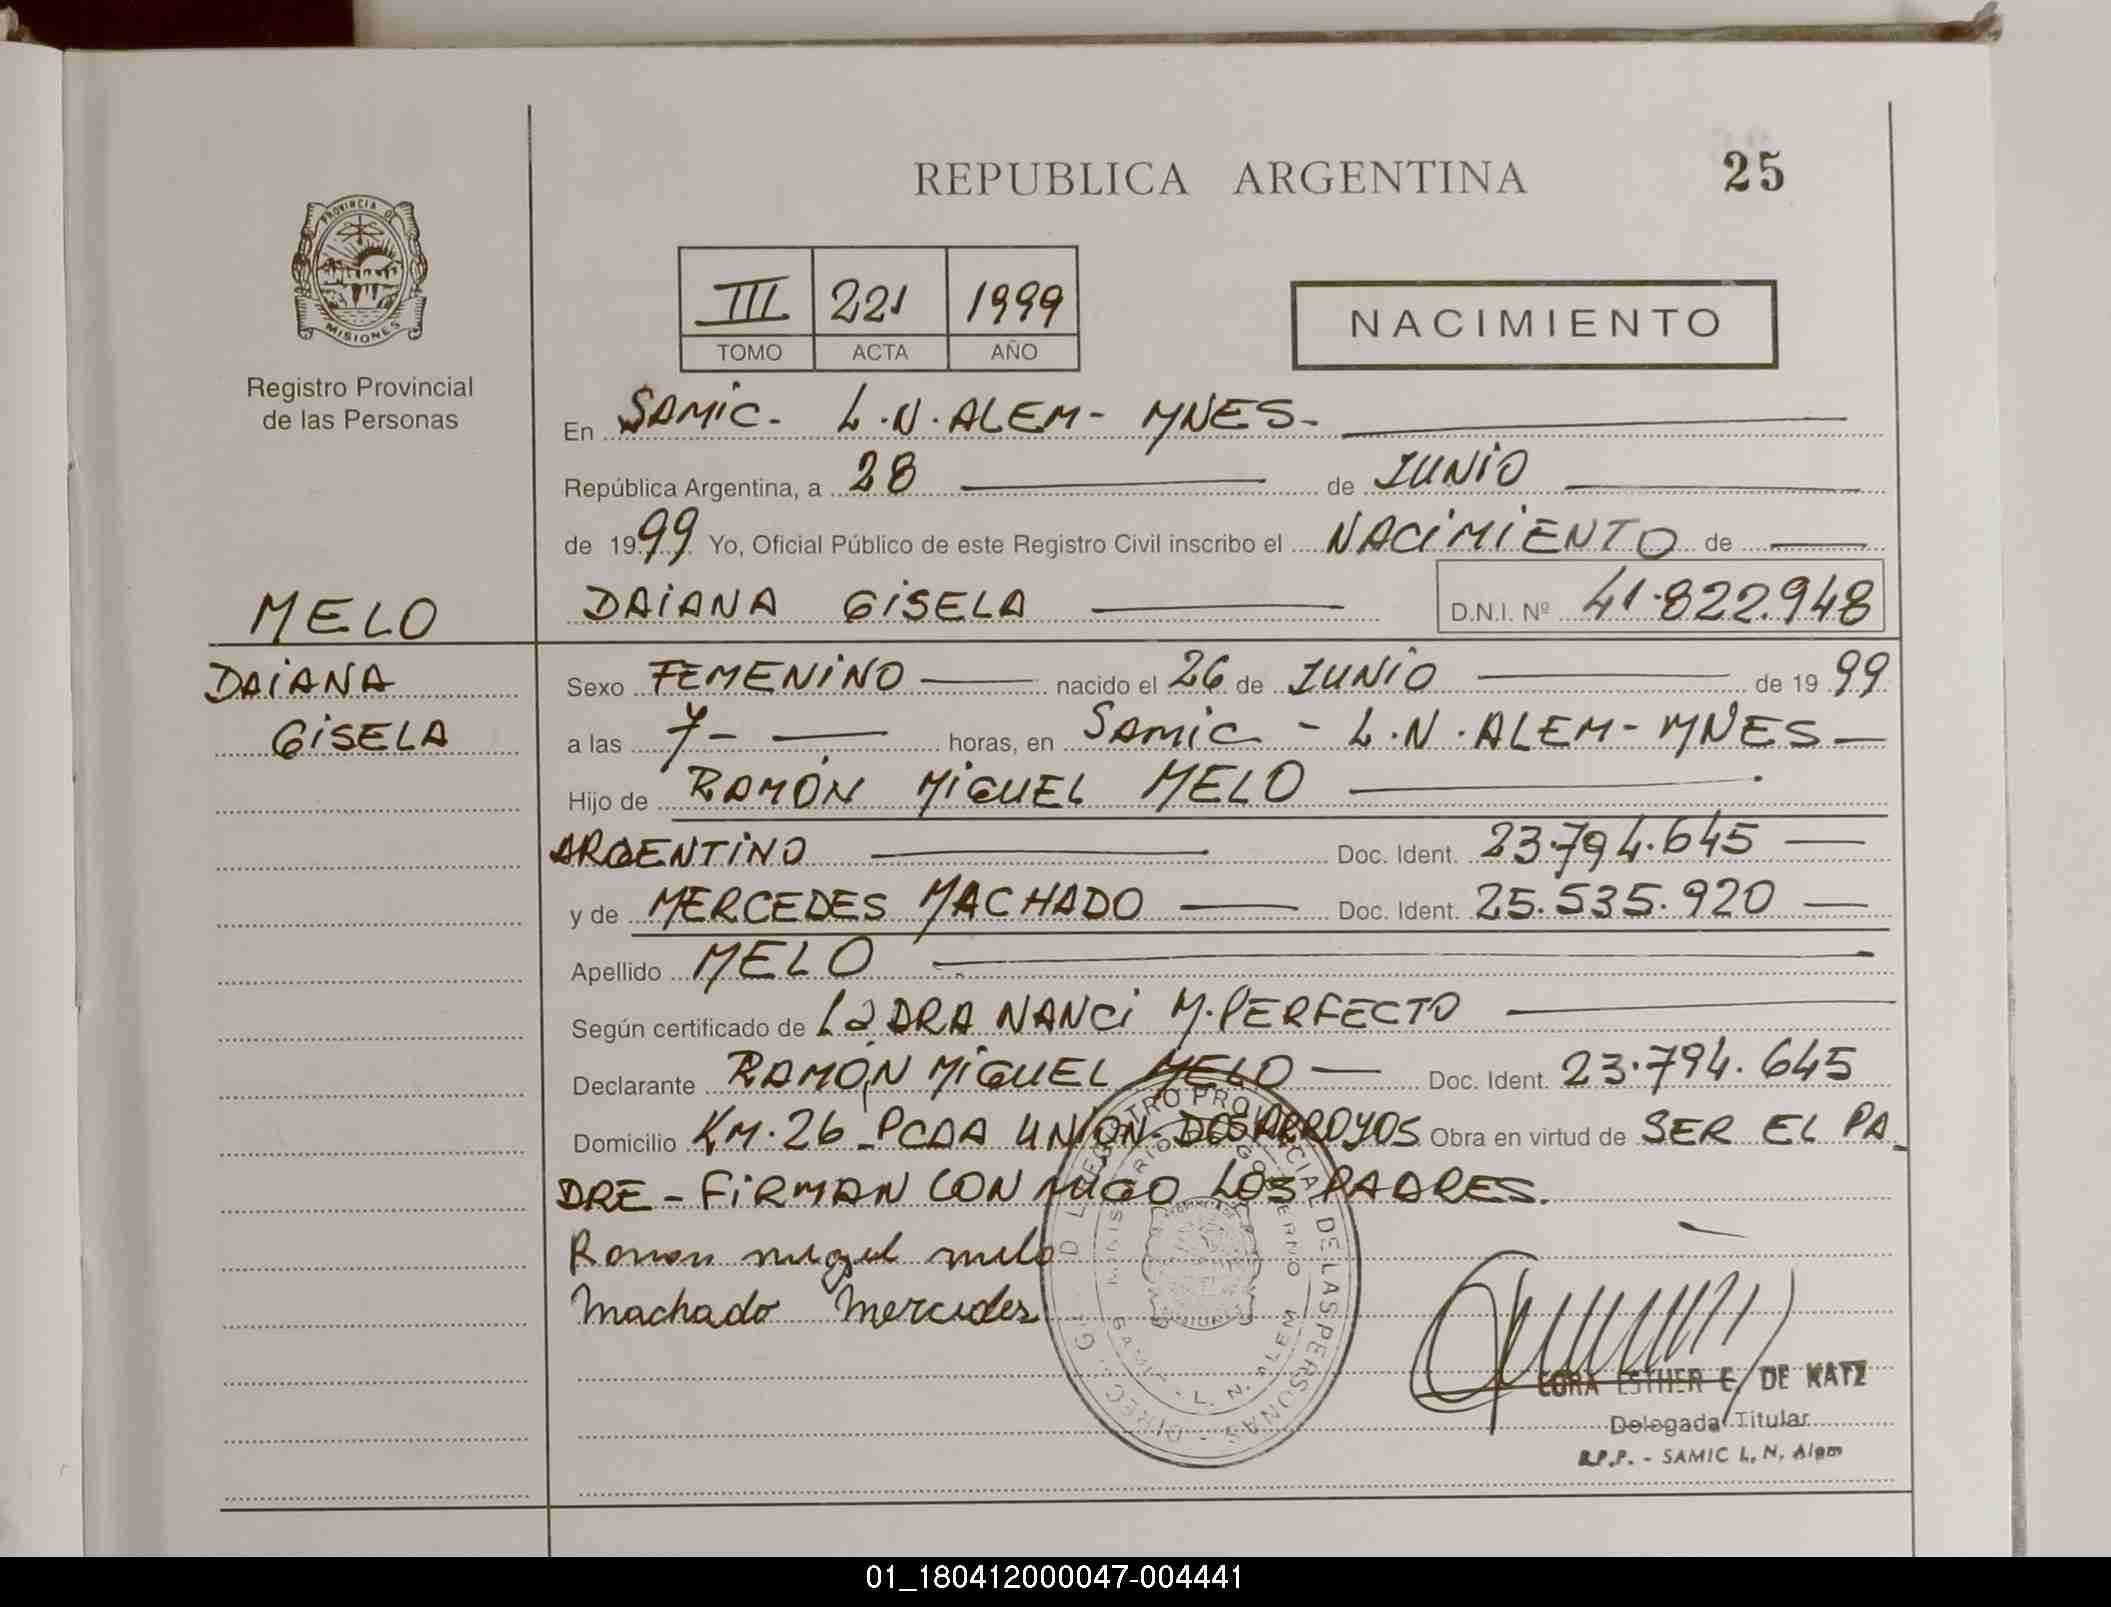 REPUBLICA ARGENTINA
25
PROVINCIA DE
MISIONES
Registro Provincial
de las Personas
III 221 1999
TOMO ACTA AÑO
NACIMIENTO
En SAMIC- L.N.ALEM- MNES-
República Argentina, a 28 de JUNIO
de 1999 Yo, Oficial Público de este Registro Civil inscribo el NACIMIENTO de
DAIANA GISELA D.N.I. Nº 41.822.948
MELO
DAIANA
GISELA
Sexo FEMENINO nacido el 26 de JUNIO de 1999
a las 7- horas, en SAMIC - L.N.ALEM- MNES
Hijo de RAMÓN MIGUEL MELO
ARGENTINO Doc. Ident. 23.794.645
y de MERCEDES MACHADO Doc. Ident. 25.535.920
Apellido MELO
Según certificado de La DRA NANCI M.PERFECTO
Declarante RAMÓN MIGUEL MELO Doc. Ident. 23.794.645
Domicilio KM.26 PCDA UNION-DOS ARROYOS Obra en virtud de SER EL PA
DRE - FIRMAN CON MIGO LOS PADRES.
Ramon miguel melo
Machado Mercedes
REGISTRO PROVINCIAL DE LAS PERSONAS
SAMIC - L. N. ALEM
ESTHER E. DE KATZ
Delegada Titular
R.P.P. - SAMIC L. N. Alem
01_180412000047-004441